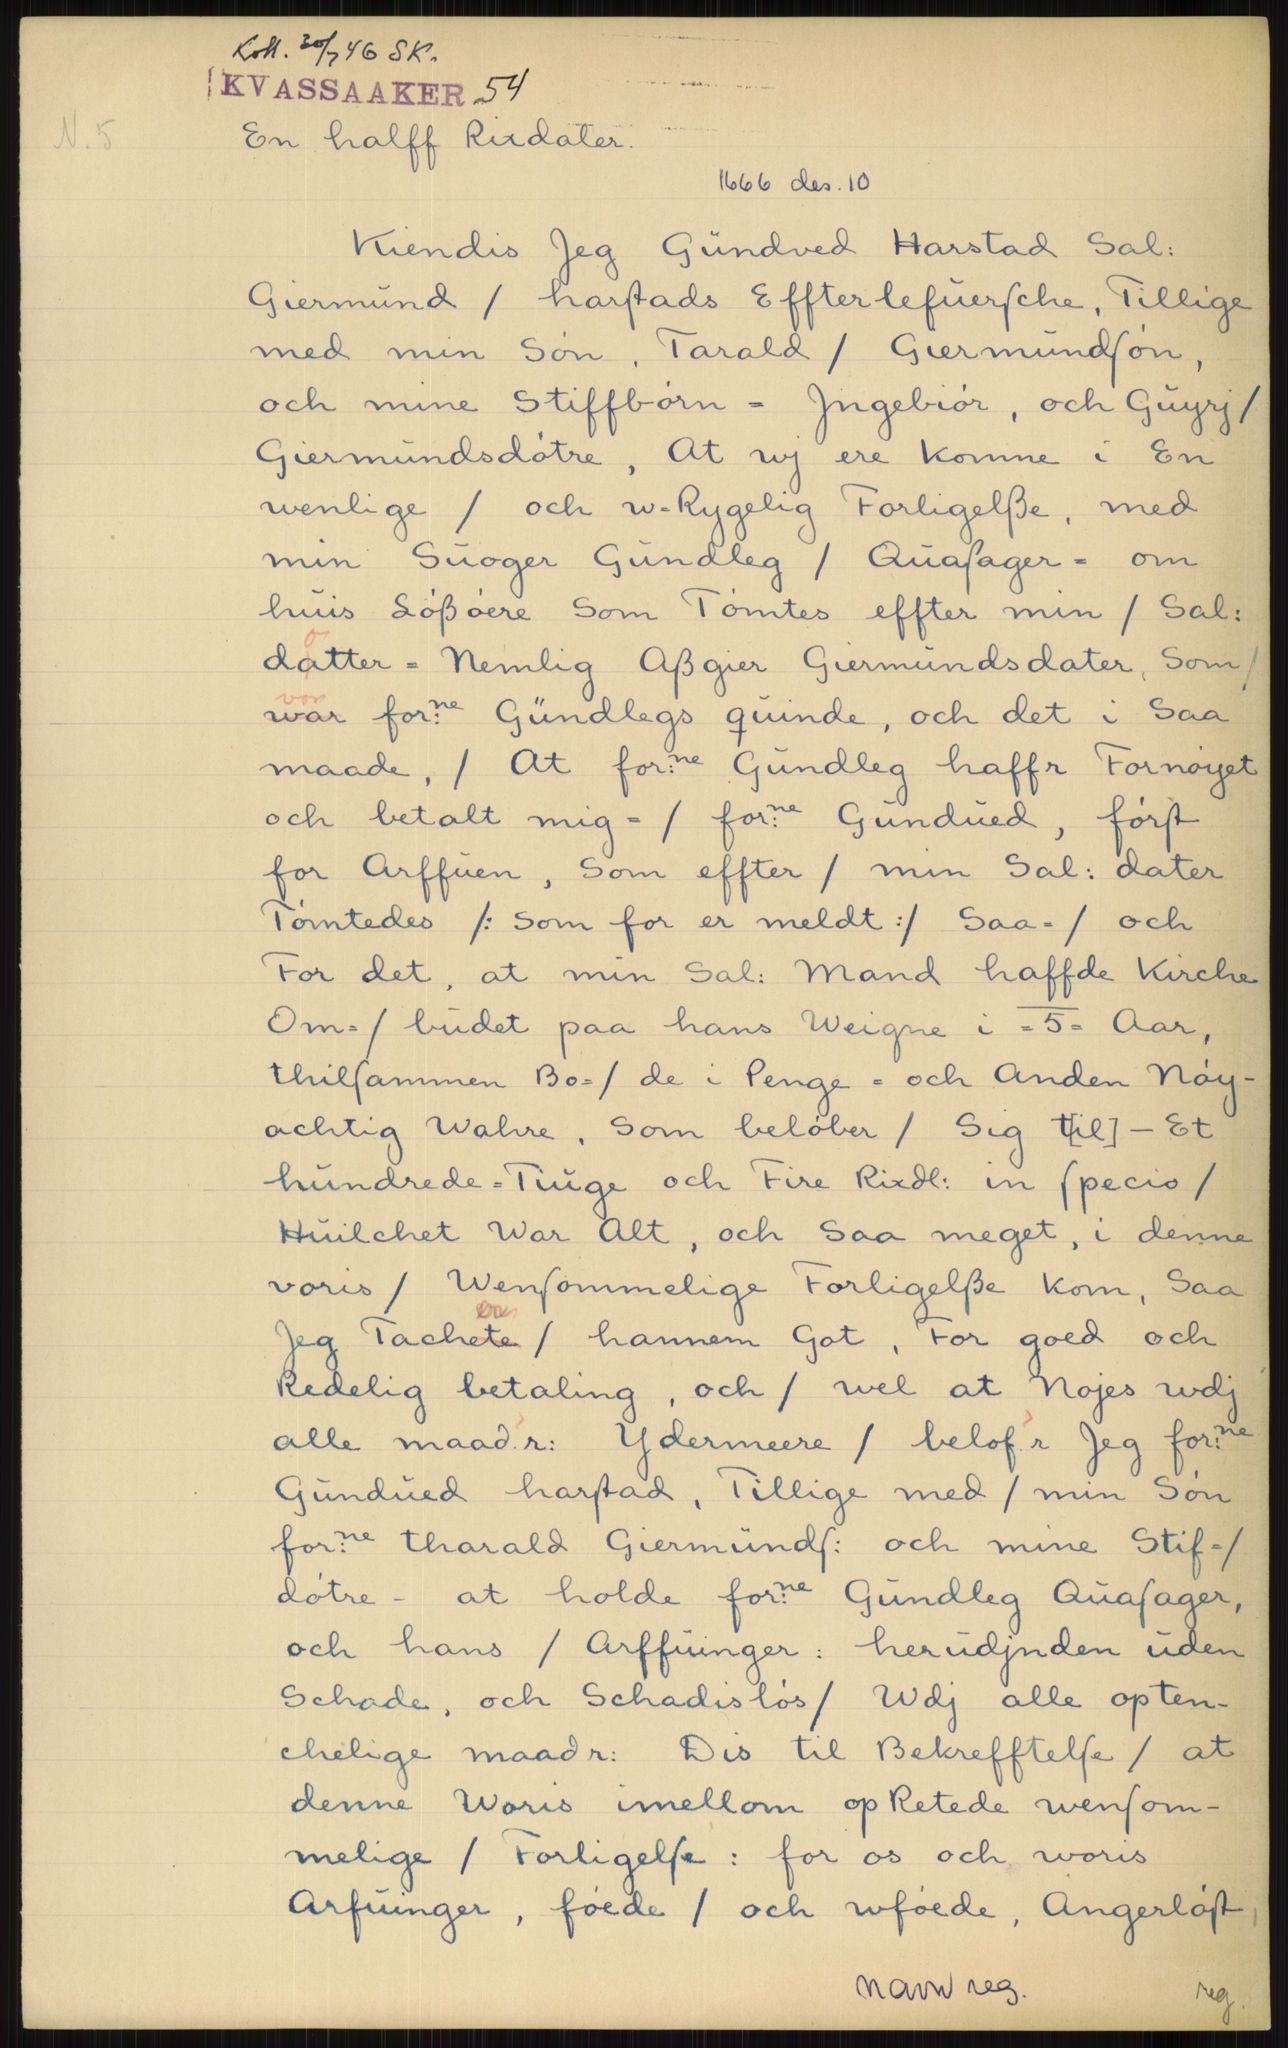 Koll. 20/7 46 SK.
KVASSAAKER 54
N. 5
En halff Rixdaler.
1666 des. 10
Kiendis Jeg Gündved Harstad Sal:
Giermünd / harſtads Effterlefüerſche, Tillige
med min Són, Tarald / Giermündſón,
och mine Stiffbórn = Jngebiór, och Güyrj /
Giermündsdótre, At wj ere komne i En
wenlige / och w=Rygelig Forligelße, med
min Süoger Gündleg / Qüaſager = om
hüis Lóßóere Som Tómtes effter min / Sal:
o
datter = Nemlig Aßgier Giermündsdater, Som /
von
war for:ne Gündlegs qüinde, och det i Saa
maade, / At for:ne Gündleg haffr Fornóyet
och betalt mig = / for:ne Gündüed, fórſt
for Arffüen, Som effter / min Sal: dater
Tómtedes /: Som for er meldt :/ Saa = / och
For det, at min Sal: Mand haffde Kirche
Om = / büdet paa hans Weigne i = 5 = Aar,
thilſammen Bo = / de i Penge = och Anden Nóy-
achtig Wahre, Som belóber / Sig t[il] - Et
hündrede = Tiüge och Fire Rixdl: in ſpecio /
Hüilchet War Alt, och Saa meget, i denne
voris / Wenſommelige Forligelße kom, Saa
Jeg Tachete / hannem Got, For goed och
Redelig betaling, och / wel at Nojes wdj
alle maad.r: Ydermeere / belof.r Jeg for:ne
Gündüed harſtad, Tillige med / min Són
for:ne tharald Giermündſ: och mine Stif = /
dótre - at holde for:ne Gündleg Qüaſager,
och hans / Arffüinger : herüdjnden üden
Schade, och Schadislós / Wdj alle opten-
chelige maadr: Dis til Bekrefftelſe / at
denne Woris imellom opRetede wenſom-
melige / Forligelſe : for os och woris
Arfüinger, fóede / och wfóede, Angerlóſt,
navnreg.
reg.